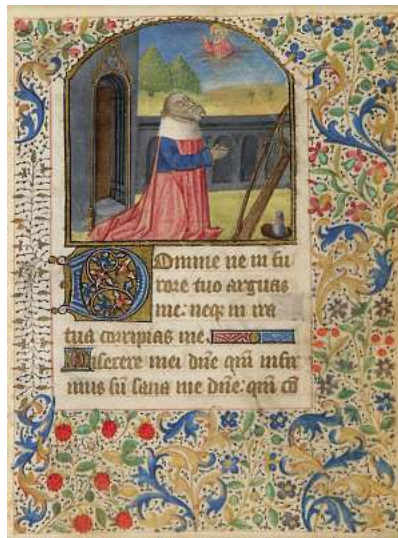 Domine ne in fu
rore tuo arguas
me: neqz in ira
tua corripias me.
Miserere mei dn̄e qm̄ infir
mus sū sana me dn̄e: qm̄ cō